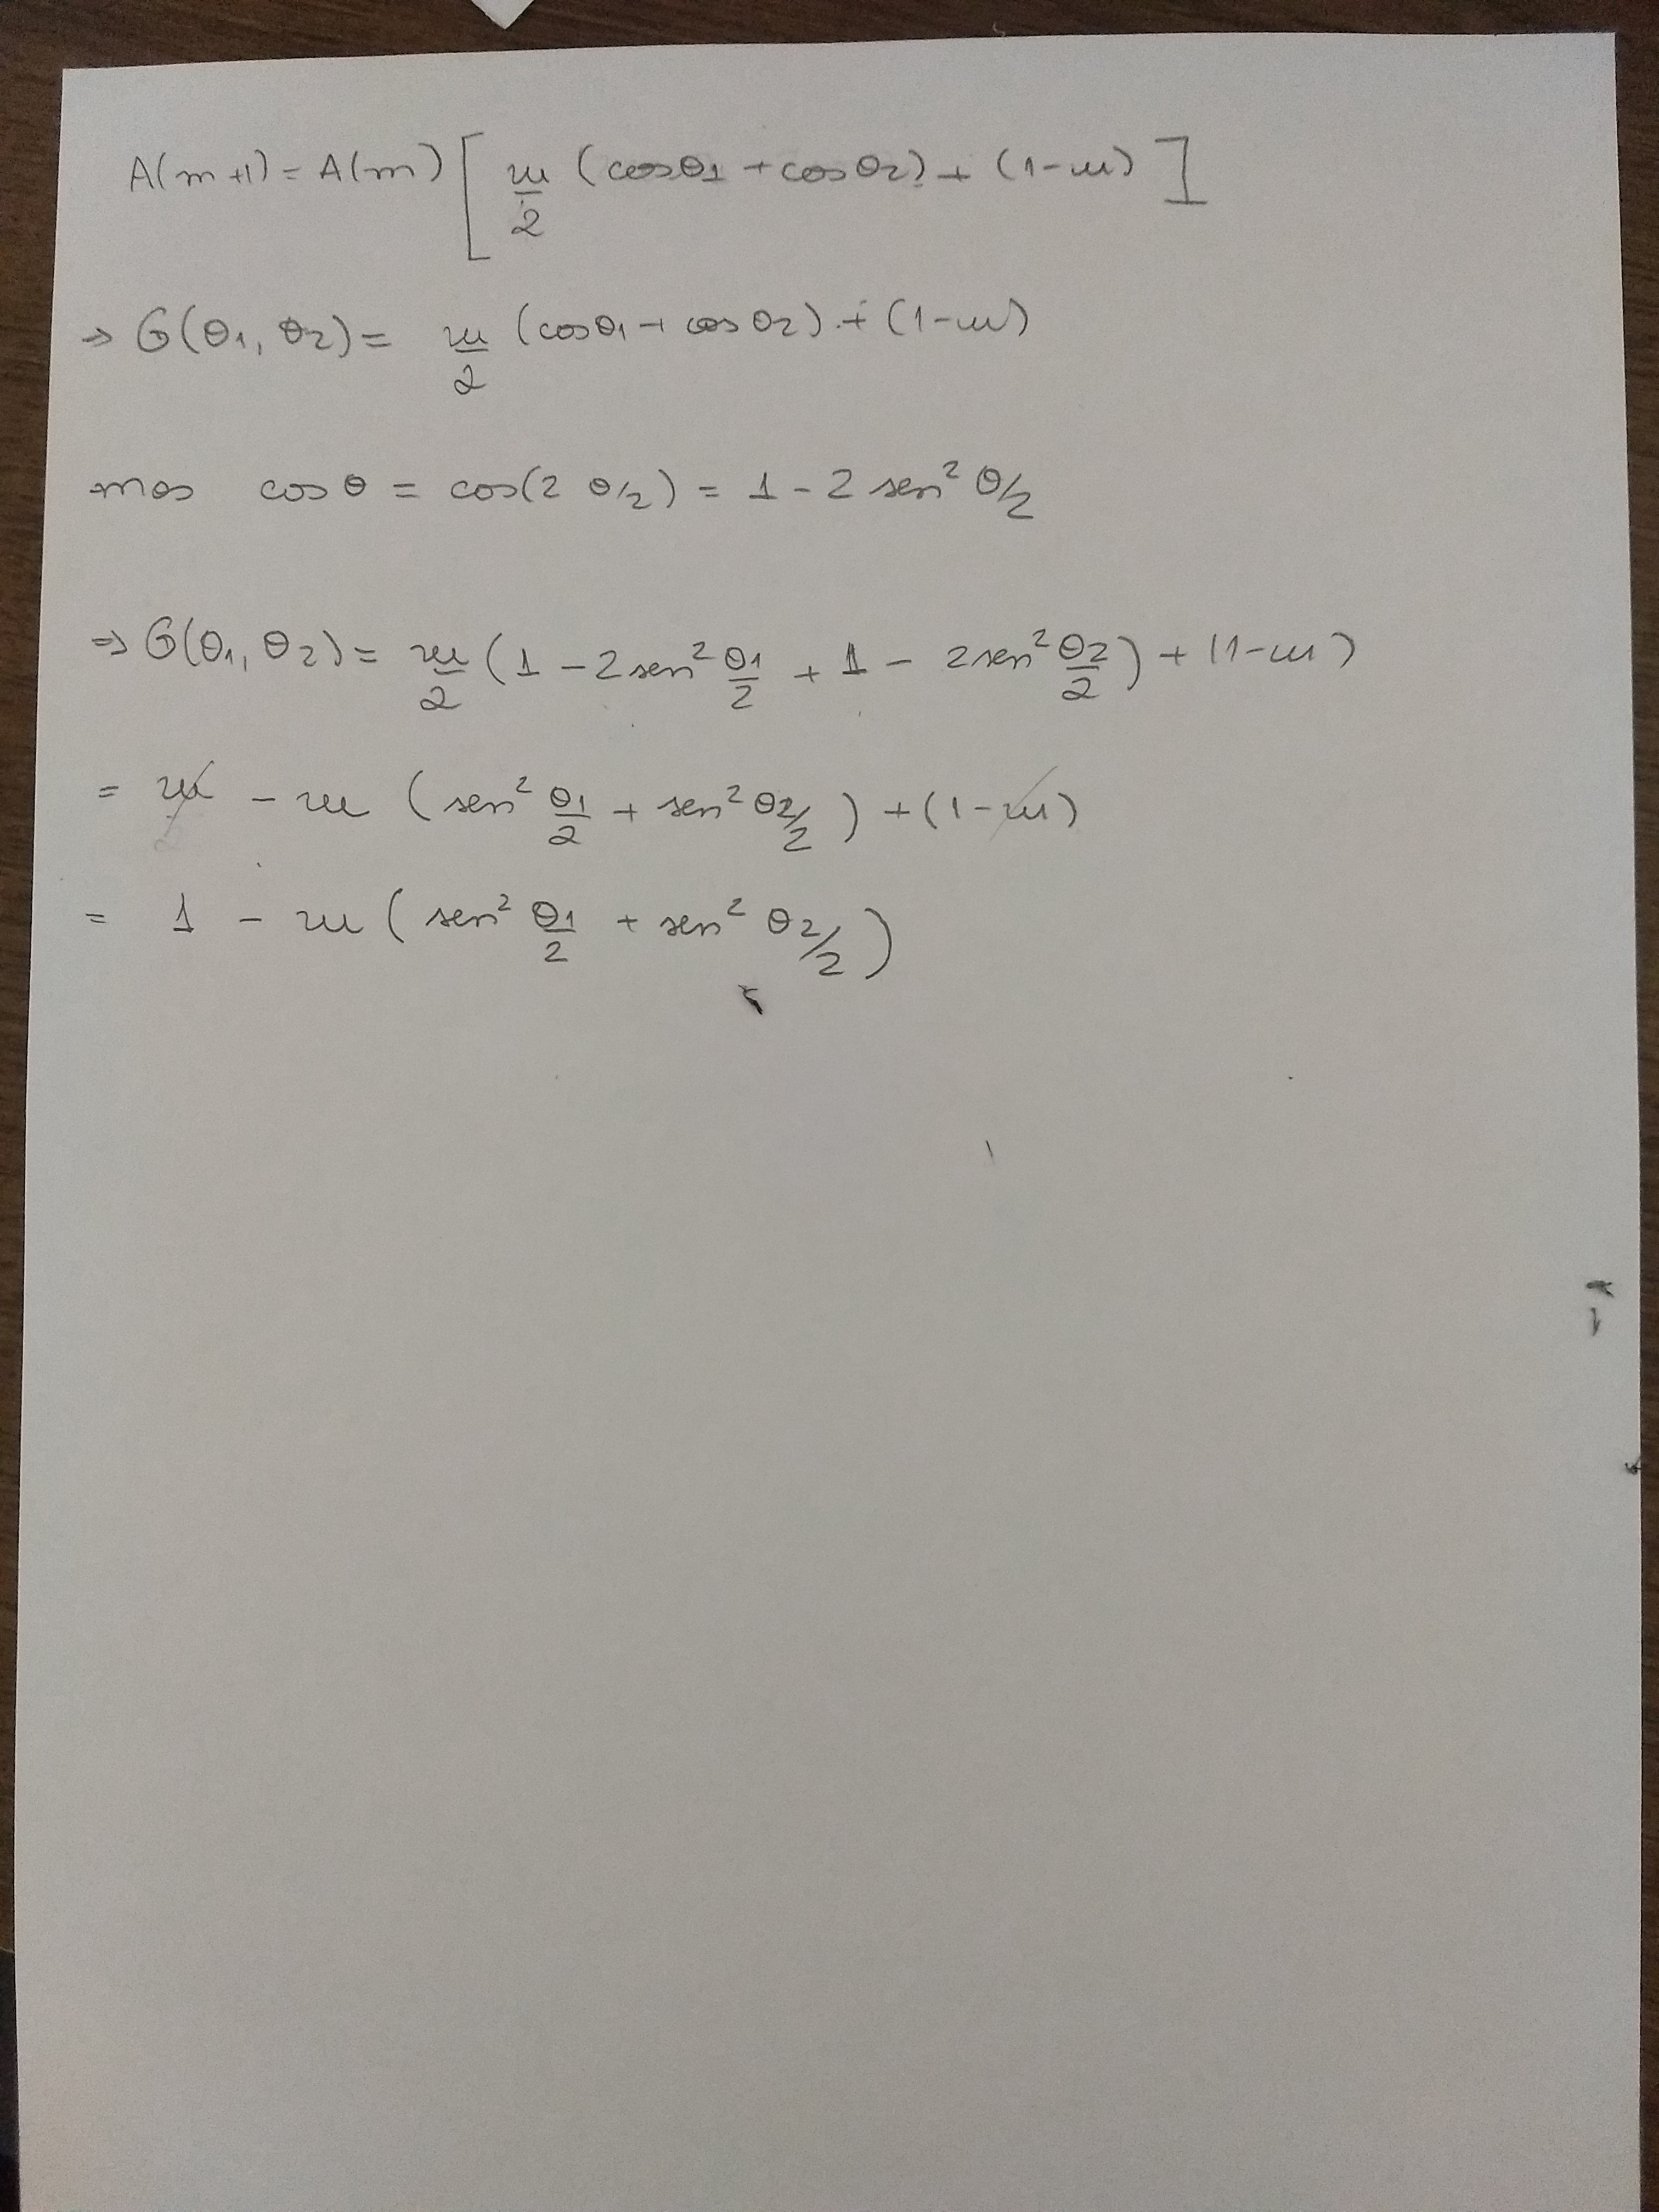 A(m+1) = A(m) [ w/2 (cosθ1 + cosθ2) + (1-w) ]
⇒ G(θ1, θ2) = w/2 (cosθ1 + cosθ2) + (1-w)
mas cosθ = cos(2 θ/2) = 1 - 2 sen² θ/2
⇒ G(θ1, θ2) = w/2 (1 - 2sen² θ1/2 + 1 - 2sen² θ2/2) + (1-w)
= w - w (sen² θ1/2 + sen² θ2/2) + (1-w)
= 1 - w (sen² θ1/2 + sen² θ2/2)